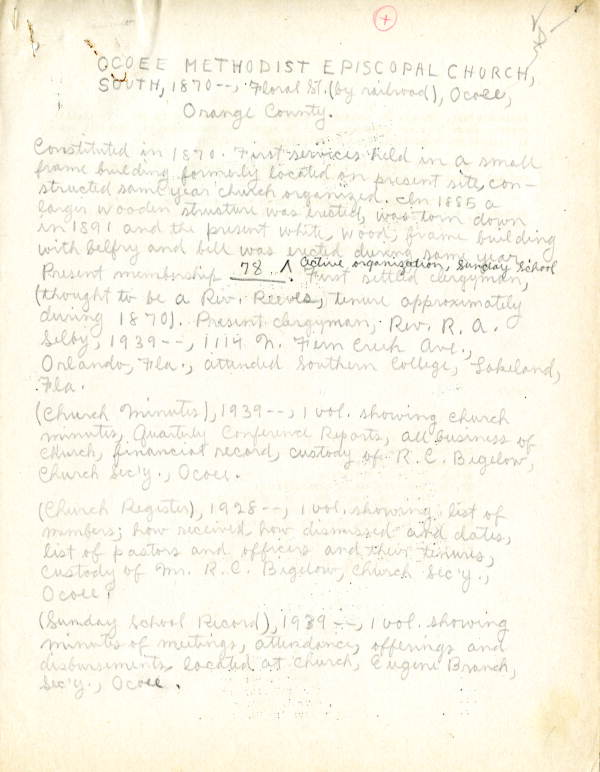 OCOEE METHODIST EPISCOPAL CHURCH,
SOUTH, 1870--, Floral St. (by railroad), Ocoee,
Orange County.
Constituted in 1870. First services held in a small
frame building formerly located on present site, con-
structed same year church organized. In 1885 a
larger wooden structure was erected, was torn down
in 1891 and the present white, wood, frame building
with belfry and bell was erected during same year.
Present membership 78. ∧ active organization, Sunday School First settled clergyman,
(thought to be a Rev. Reeves, tenure approximately
during 1870). Present clergyman, Rev. R. A.
Selby, 1939--, 1114 N. Fern Creek Ave.,
Orlando, Fla., attended Southern College, Lakeland,
Fla.
(Church Minutes), 1939--, 1 vol. showing church
minutes, Quarterly Conference Reports, all business of
church, financial record, custody of R. C. Bigelow,
Church Sec'y., Ocoee.
(Church Register), 1928--, 1 vol. showing list of
members; how received, how dismissed and dates,
list of pastors and officers and their tenures,
custody of Mr. R. C. Bigelow, Church Sec'y.,
Ocoee.
(Sunday School Record), 1939--, 1 vol. showing
minutes of meetings, attendance, offerings and
disbursements, located at Church, Eugene Branch,
Sec'y., Ocoee.